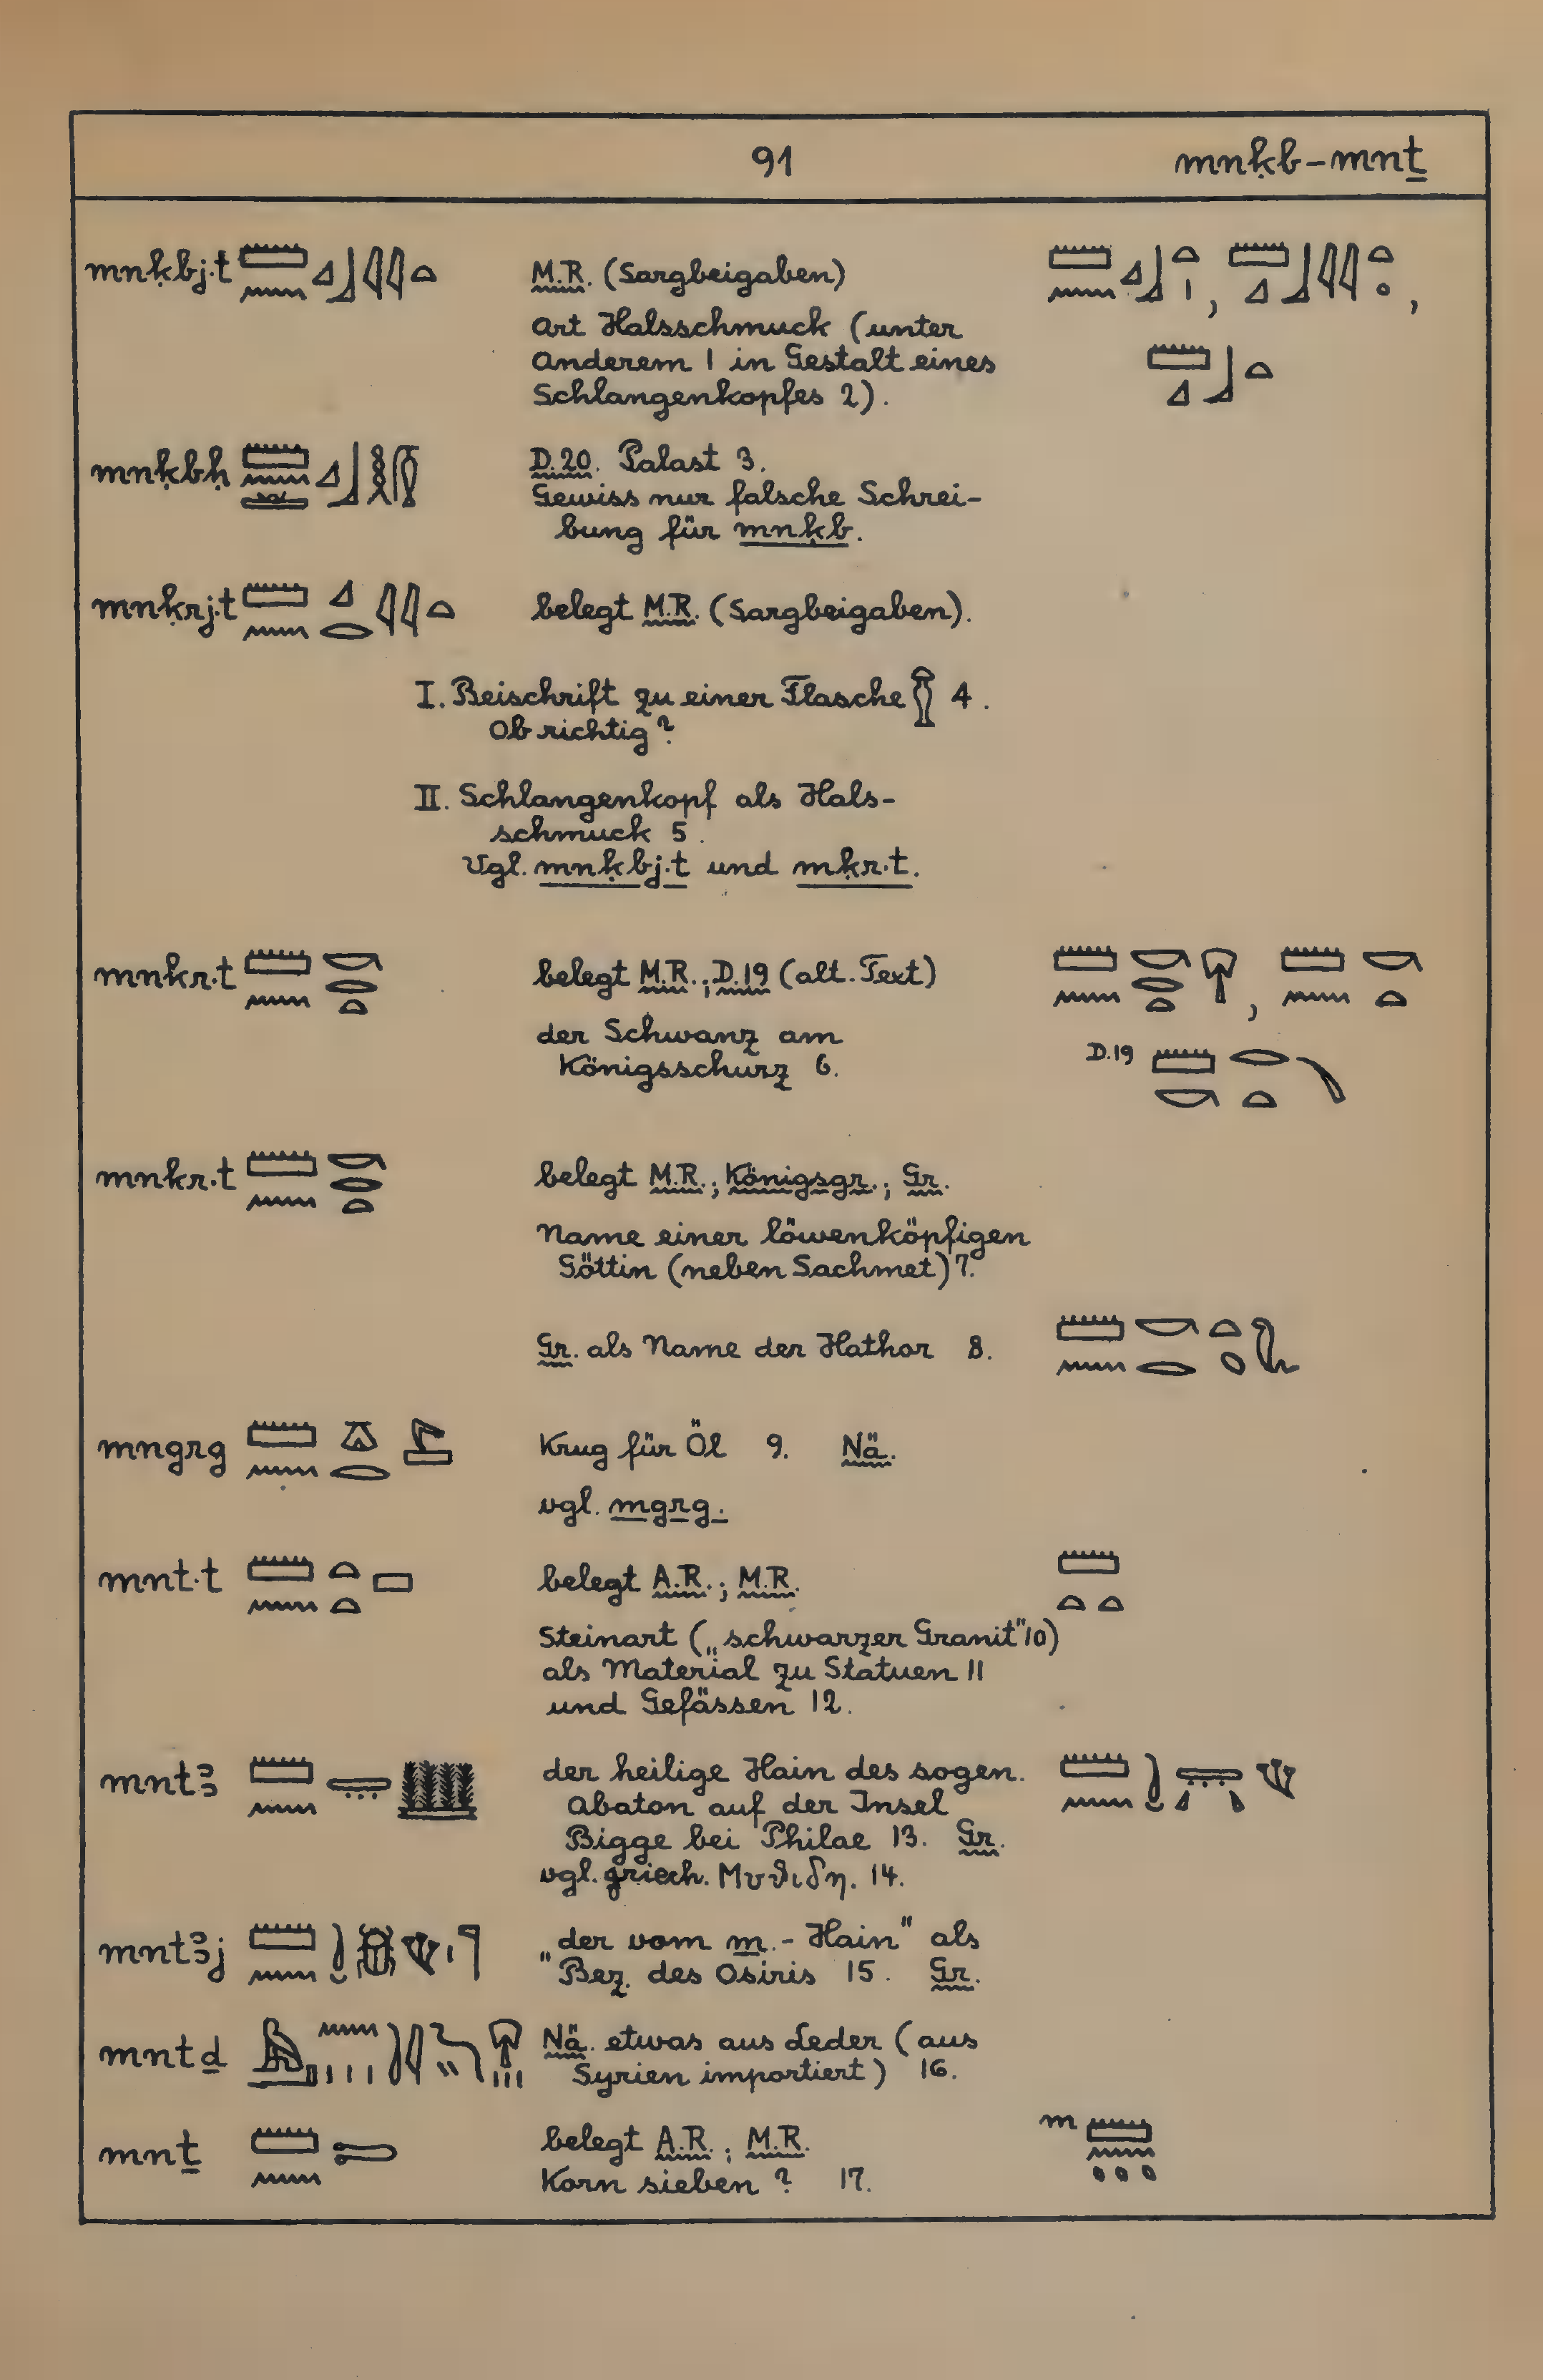 91 mnḳb–mnṯ
mnḳbj.t M.R. (Sargbeigaben)
Art Halsschmuck (unter
Anderem 1 in Gestalt eines
Schlangenkopfes 2).
mnḳbḥ D.20. Palast 3.
Gewiss nur falsche Schrei-
bung für mnḳb.
mnḳrj.t belegt M.R. (Sargbeigaben).
I. Beischrift zu einer Flasche 4.
Ob richtig?
II. Schlangenkopf als Hals-
schmuck 5.
Vgl. mnḳbj.t und mḳr.t.
mnkr.t belegt M.R.; D.19 (alt. Text)
der Schwanz am
Königsschurz 6.
D.19
mnkr.t belegt M.R.; Königsgr.; Gr.
Name einer löwenköpfigen
Göttin (neben Sachmet) 7.
Gr. als Name der Hathor 8.
mngrg Krug für Öl 9. Nä.
vgl. mgrg.
mnt.t belegt A.R.; M.R.
Steinart („schwarzer Granit" 10)
als Material zu Statuen 11
und Gefässen 12.
mntꜣ der heilige Hain des sogen.
Abaton auf der Insel
Bigge bei Philae 13. Gr.
vgl. griech. Μυϑιδη. 14.
mntꜣj „der vom m.-Hain" als
Bez. des Osiris 15. Gr.
mntḏ Nä. etwas aus Leder (aus
Syrien importiert) 16.
mnṯ belegt A.R.; M.R. m
Korn sieben? 17.